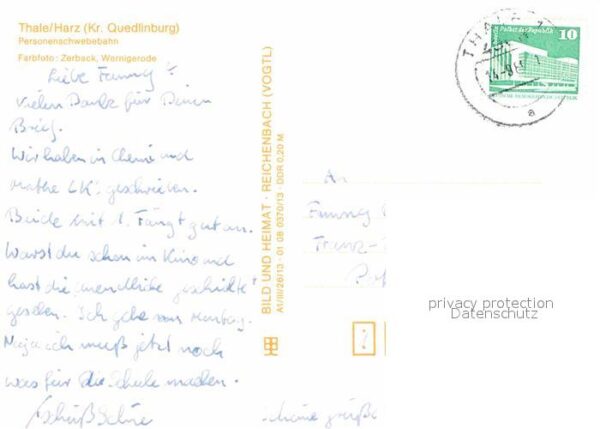 Thale/Harz (Kr. Quedlinburg)
Personenschwebebahn
Farbfoto: Zerback, Wernigerode
Liebe Fanny!
Vielen Dank für Deinen
Brief.
Wir haben in Chemie und
Mathe LK's geschrieben.
Beide mit 1. Fängt gut an.
Warst du schon im Kino und
hast die „unendliche Geschichte"
gesehen. Ich gehe am Montag.
Naja ich muß jetzt noch
was für die Schule machen.
Tschüß
schöne grüße
BILD UND HEIMAT · REICHENBACH (VOGTL)
A1/III/26/13 · 01 08 0370/13 · DDR 0,20 M
THALE
Palast der Republik
10
a
An
Fanny
Franz-
privacy protection
Datenschutz